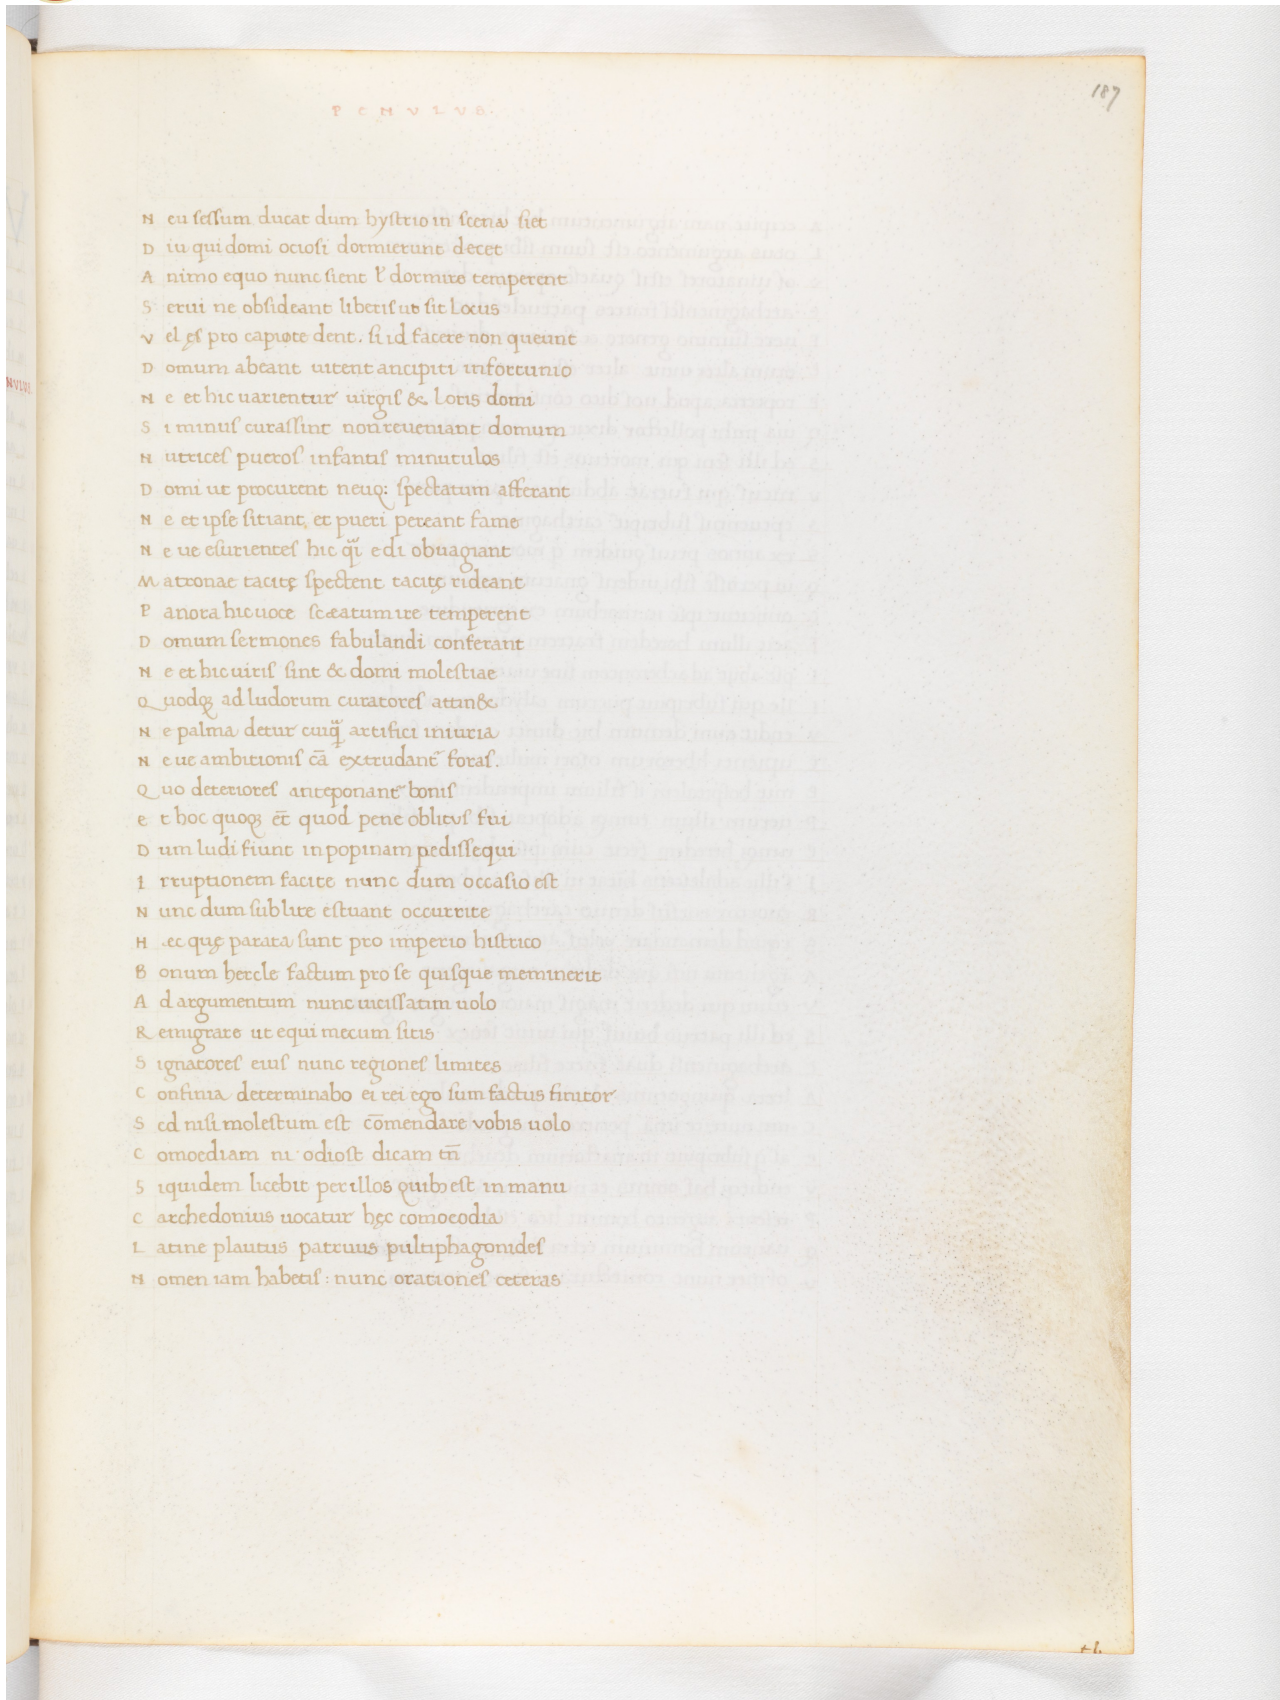 PCNVLVS.
187
Neu sessum ducat dum hystrio in scena siet
Diu qui domi ociosi dormierunt decet
Animo equo nunc sient ł dormire temperent
Serui ne obsideant liberis ut sit locus
Vel ęs pro capite dent. si id facere non queunt
Domum abeant uitent ancipiti infortunio
Ne et hic uarientur uirgis & Loris domi
Si minus curassint non reueniant domum
Nutrices pueros infantis minutulos
Domi ut procurent neuq: spectatum afferant
Ne et ipse sitiant et pueri pereant fame
Ne ue esurientes hic qͣi edi obuagiant
Matronae tacitę spectent tacitę rideant
Panora hic uoce scæatum ire temperent
Domum sermones fabulandi conferant
Ne et hic uiris sint & domi molestiae
Quodqꝫ ad ludorum curatores attin&
Ne palma detur cuiqͣ artifici iniuria
Neue ambitionis cā extrudant᷑ foras.
Quo deteriores anteponant᷑ bonis
Et hoc quoqꝫ et̄ quod pene oblitus fui
Dum ludi fiunt in popinam pedissequi
Irruptionem facite nunc dum occasio est
Nunc dum sublite estuant occurrite
Hec quę parata sunt pro imperio histrico
Bonum hercle factum pro se quisque meminerit
Ad argumentum nunc uicissatim uolo
Remigrare ut equi mecum sitis
Signatores eius nunc regiones limites
Confinia determinabo ei rei ego sum factus finitor
Sed nisi molestum est cōmendare vobis uolo
Comoediam ni odiost dicam tn̄
Siquidem licebit per illos quibꝫ est in manu
Carchedonius uocatur hęc comoeodia
Latine plautus patruus pultiphagonides
Nomen iam habetis: nunc orationes ceteras